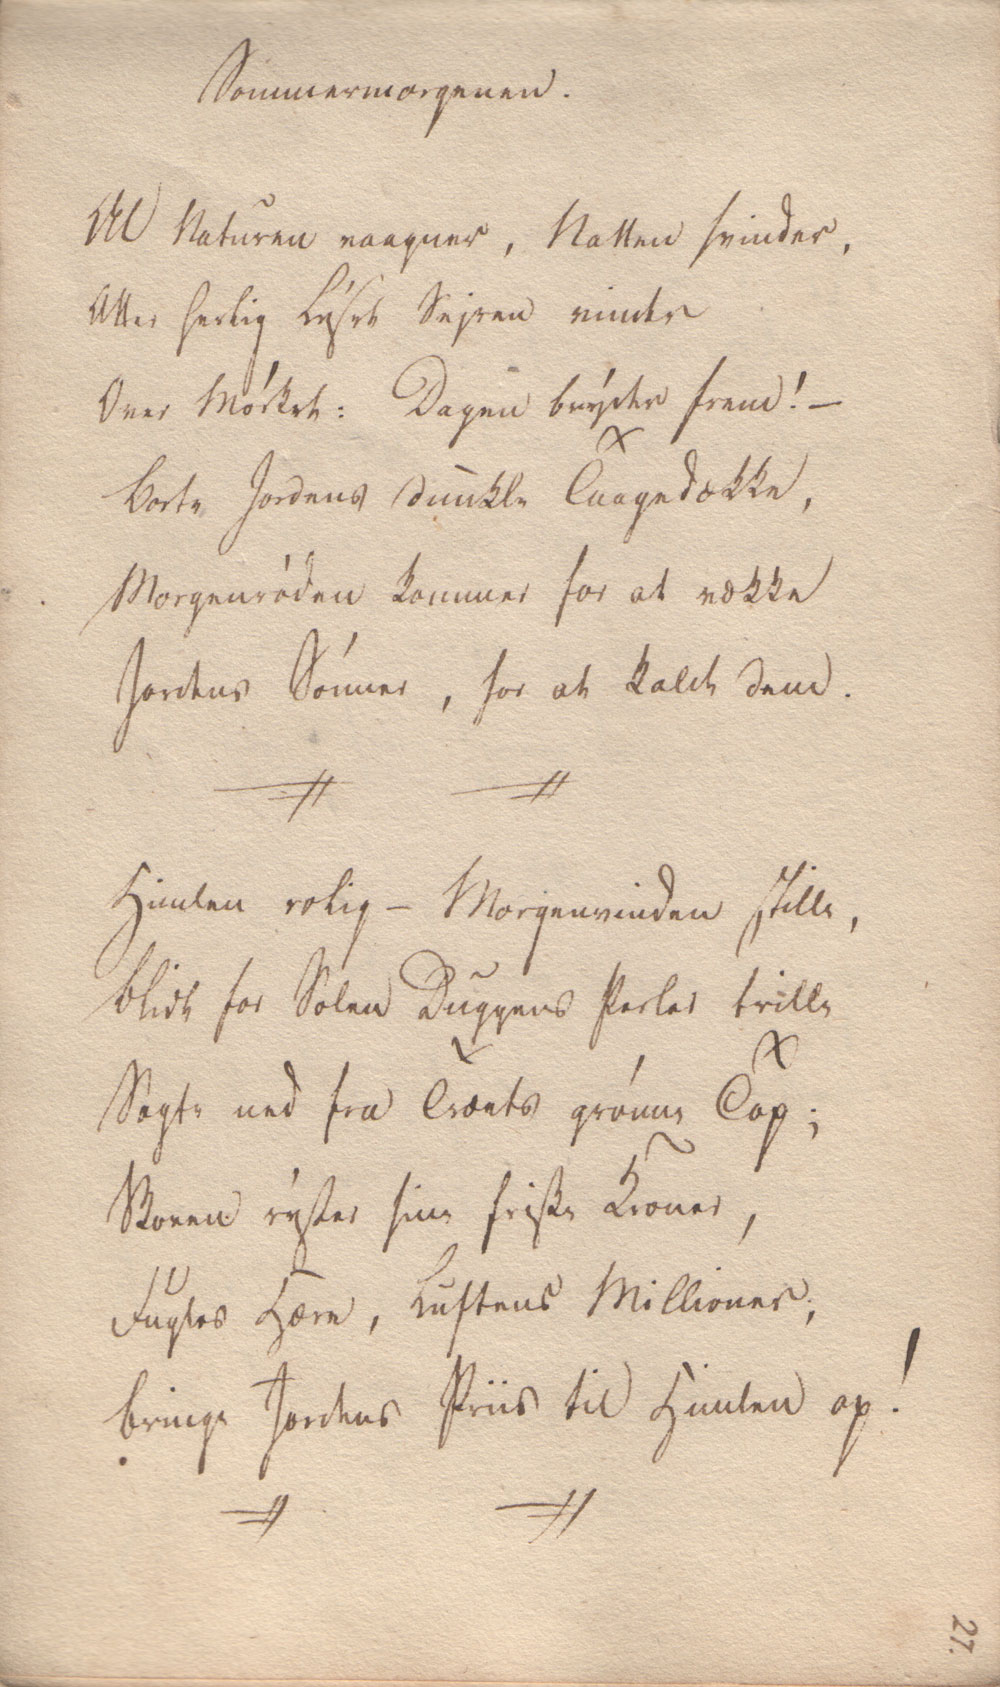 Sommermorgenen.
All Naturen vaagner, Natten svinder,
Atter herlig Lyset Sejren vinder
Over Mórket: Dagen bryder frem! —
Borte Jordens dunkle Taagedække,
Morgenróden kommer for at vække
Jordens Sónner, for at kalde dem.
Himlen rolig — Morgenvinden stille,
blidt for Solen Duggens Perler trille
Sagte ned fra Træets grónne Top;
Skoven ryster sine friske Kroner,
Fugles Hære, Luftens Millioner,
bringe Jordens Priis til Himlen op!
27.